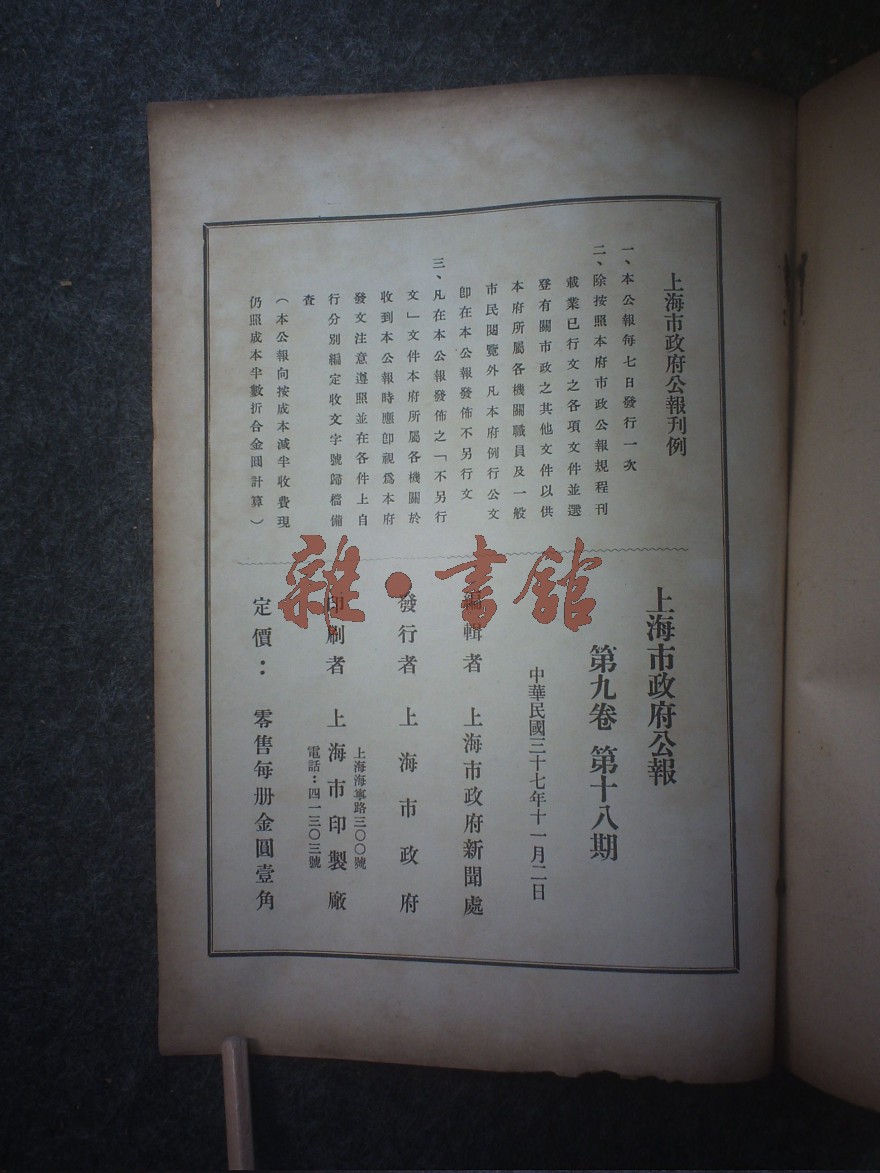 上海市政府公報刊例
一、本公報每七日發行一次
二、除按照本府市政公報規程刊
載業已行文之各項文件並選
登有關市政之其他文件以供
本府所屬各機關職員及一般
市民閱覽外凡本府例行公文
卽在本公報發佈不另行文
三、凡在本公報發佈之「不另行
文」文件本府所屬各機關於
收到本公報時應卽視爲本府
發文注意遵照並在各件上自
行分別編定收文字號歸檔備
查
（本公報向按成本減半收費現
仍照成本半數折合金圓計算）
上海市政府公報
第九卷 第十八期
中華民國三十七年十一月二日
編輯者 上海市政府新聞處
發行者 上海市政府
印刷者 上海市印製廠
上海海寧路三〇〇號
電話：四一三〇三號
定價： 零售每册金圓壹角
雜·書館